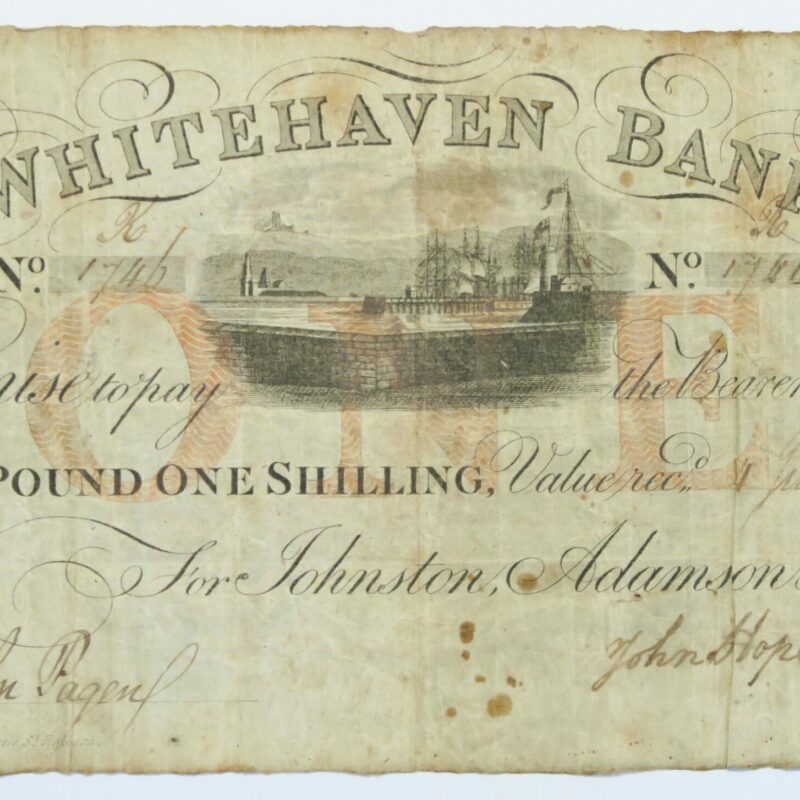 WHITEHAVEN BANK
K K
Nº. 1746 Nº. 174
ONE
use to pay the Bearer
POUND ONE SHILLING, Value rec.d
For Johnston, Adamson
n Pagen John Hope